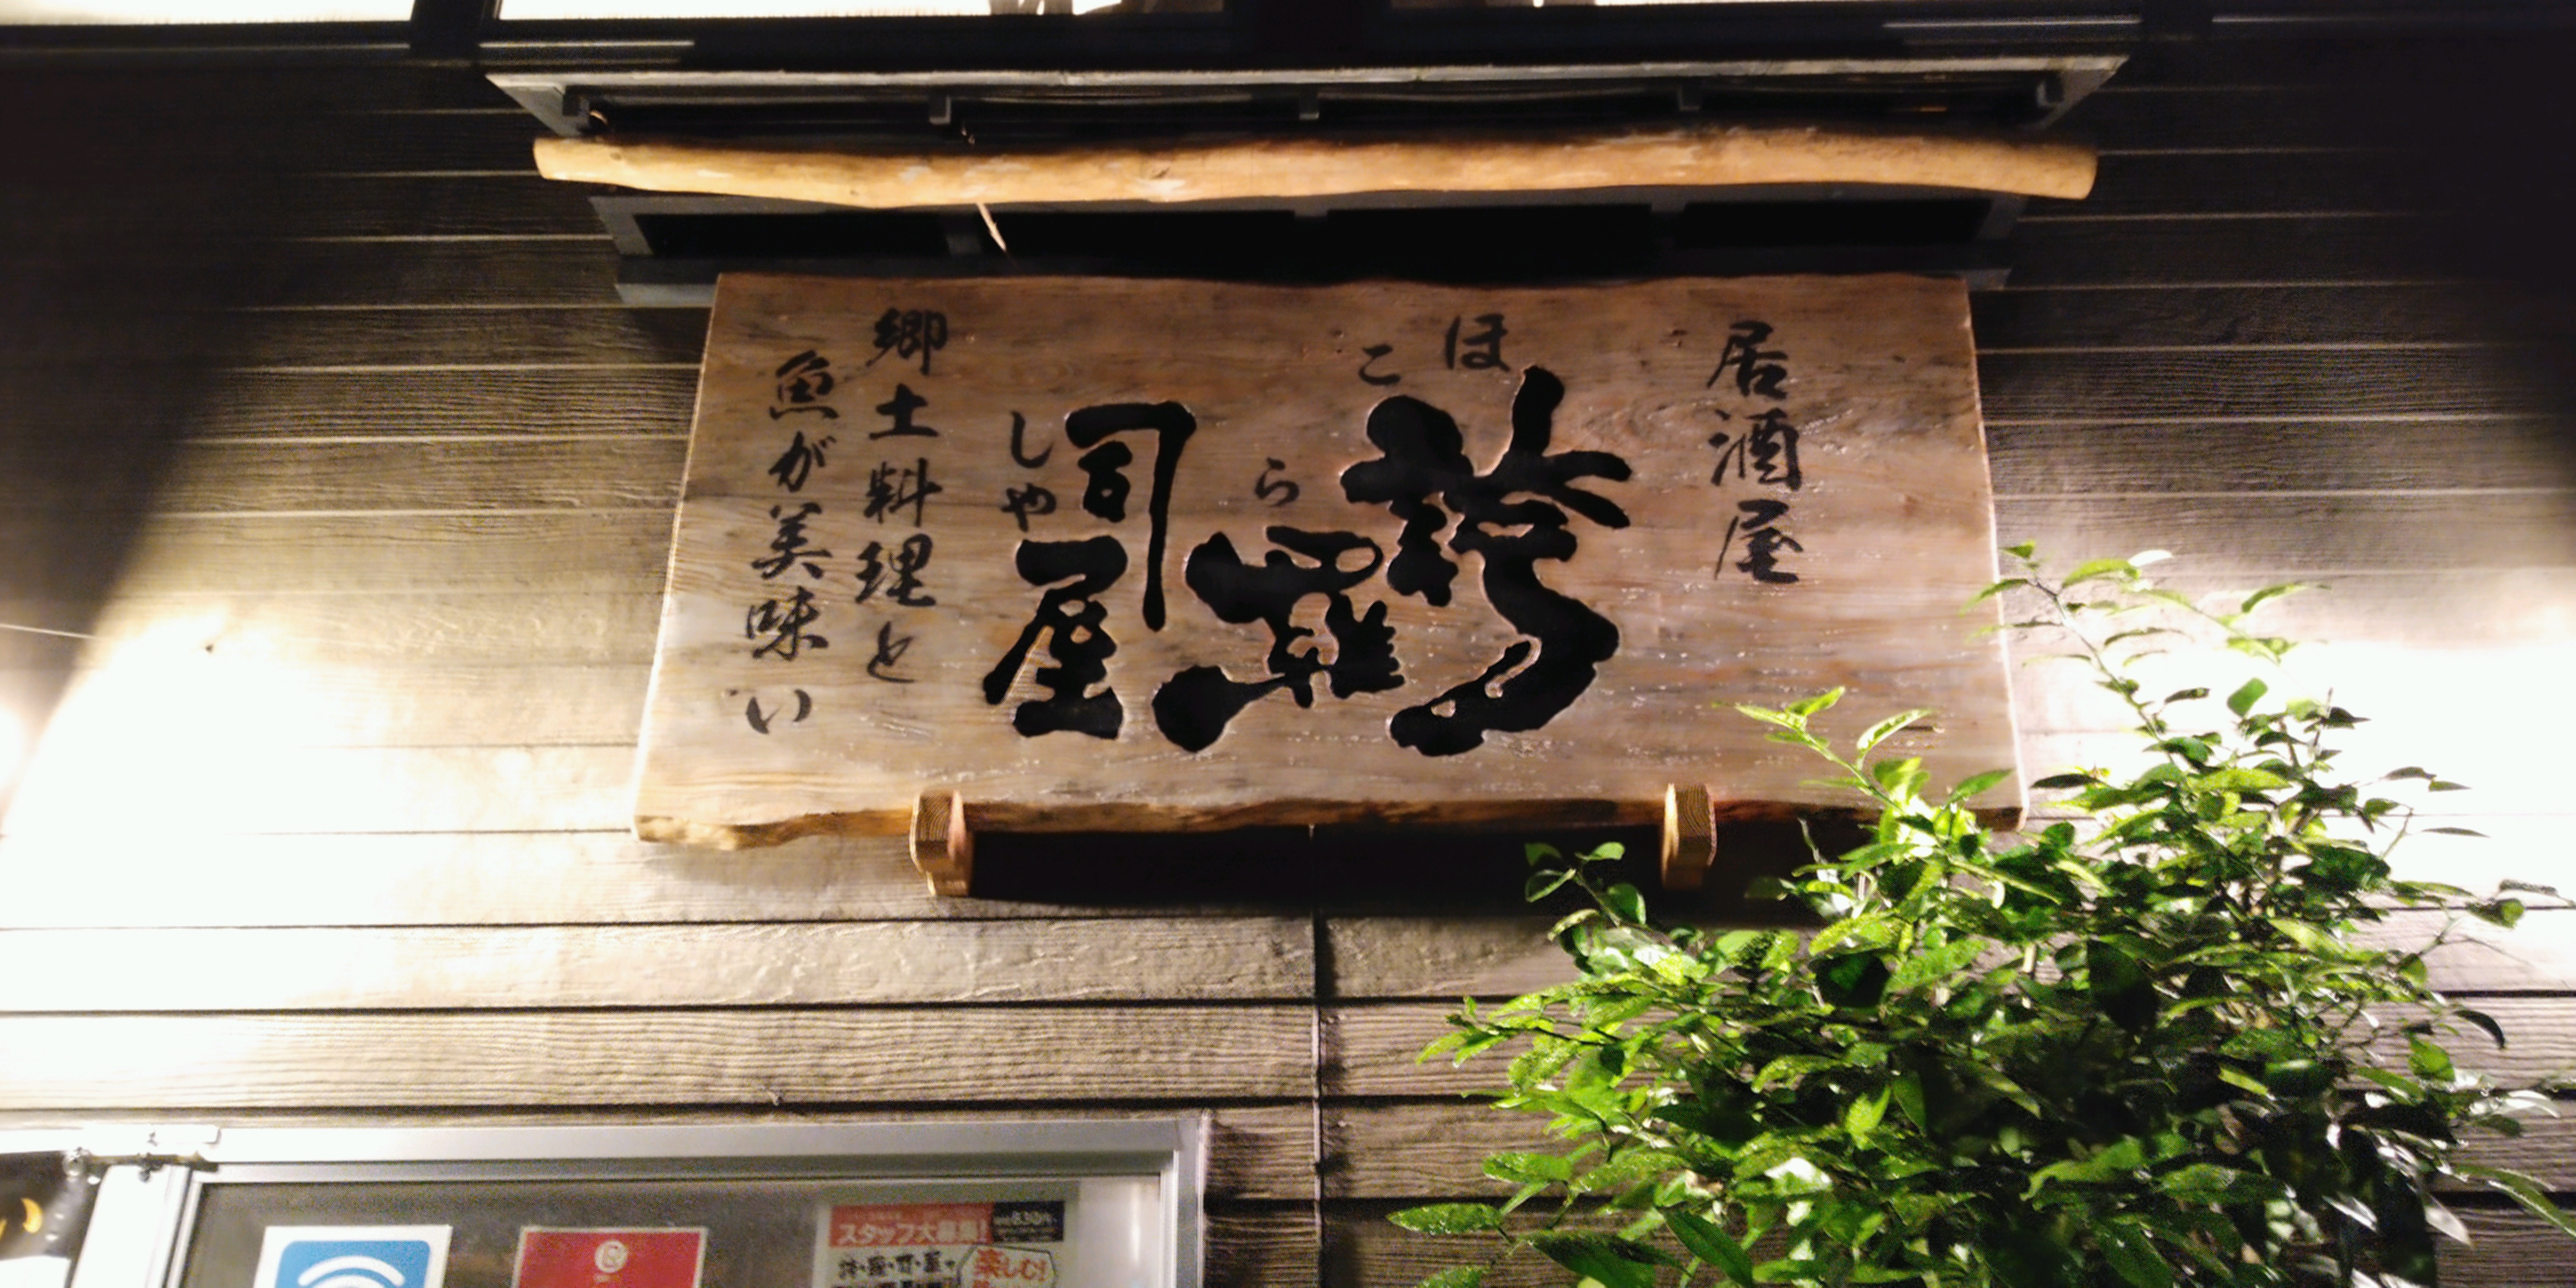 居酒屋
ほこらしや
誇羅司屋
郷土料理と
魚が美味い
スタッフ大募集!
誇・羅・司・屋で
楽しむ!